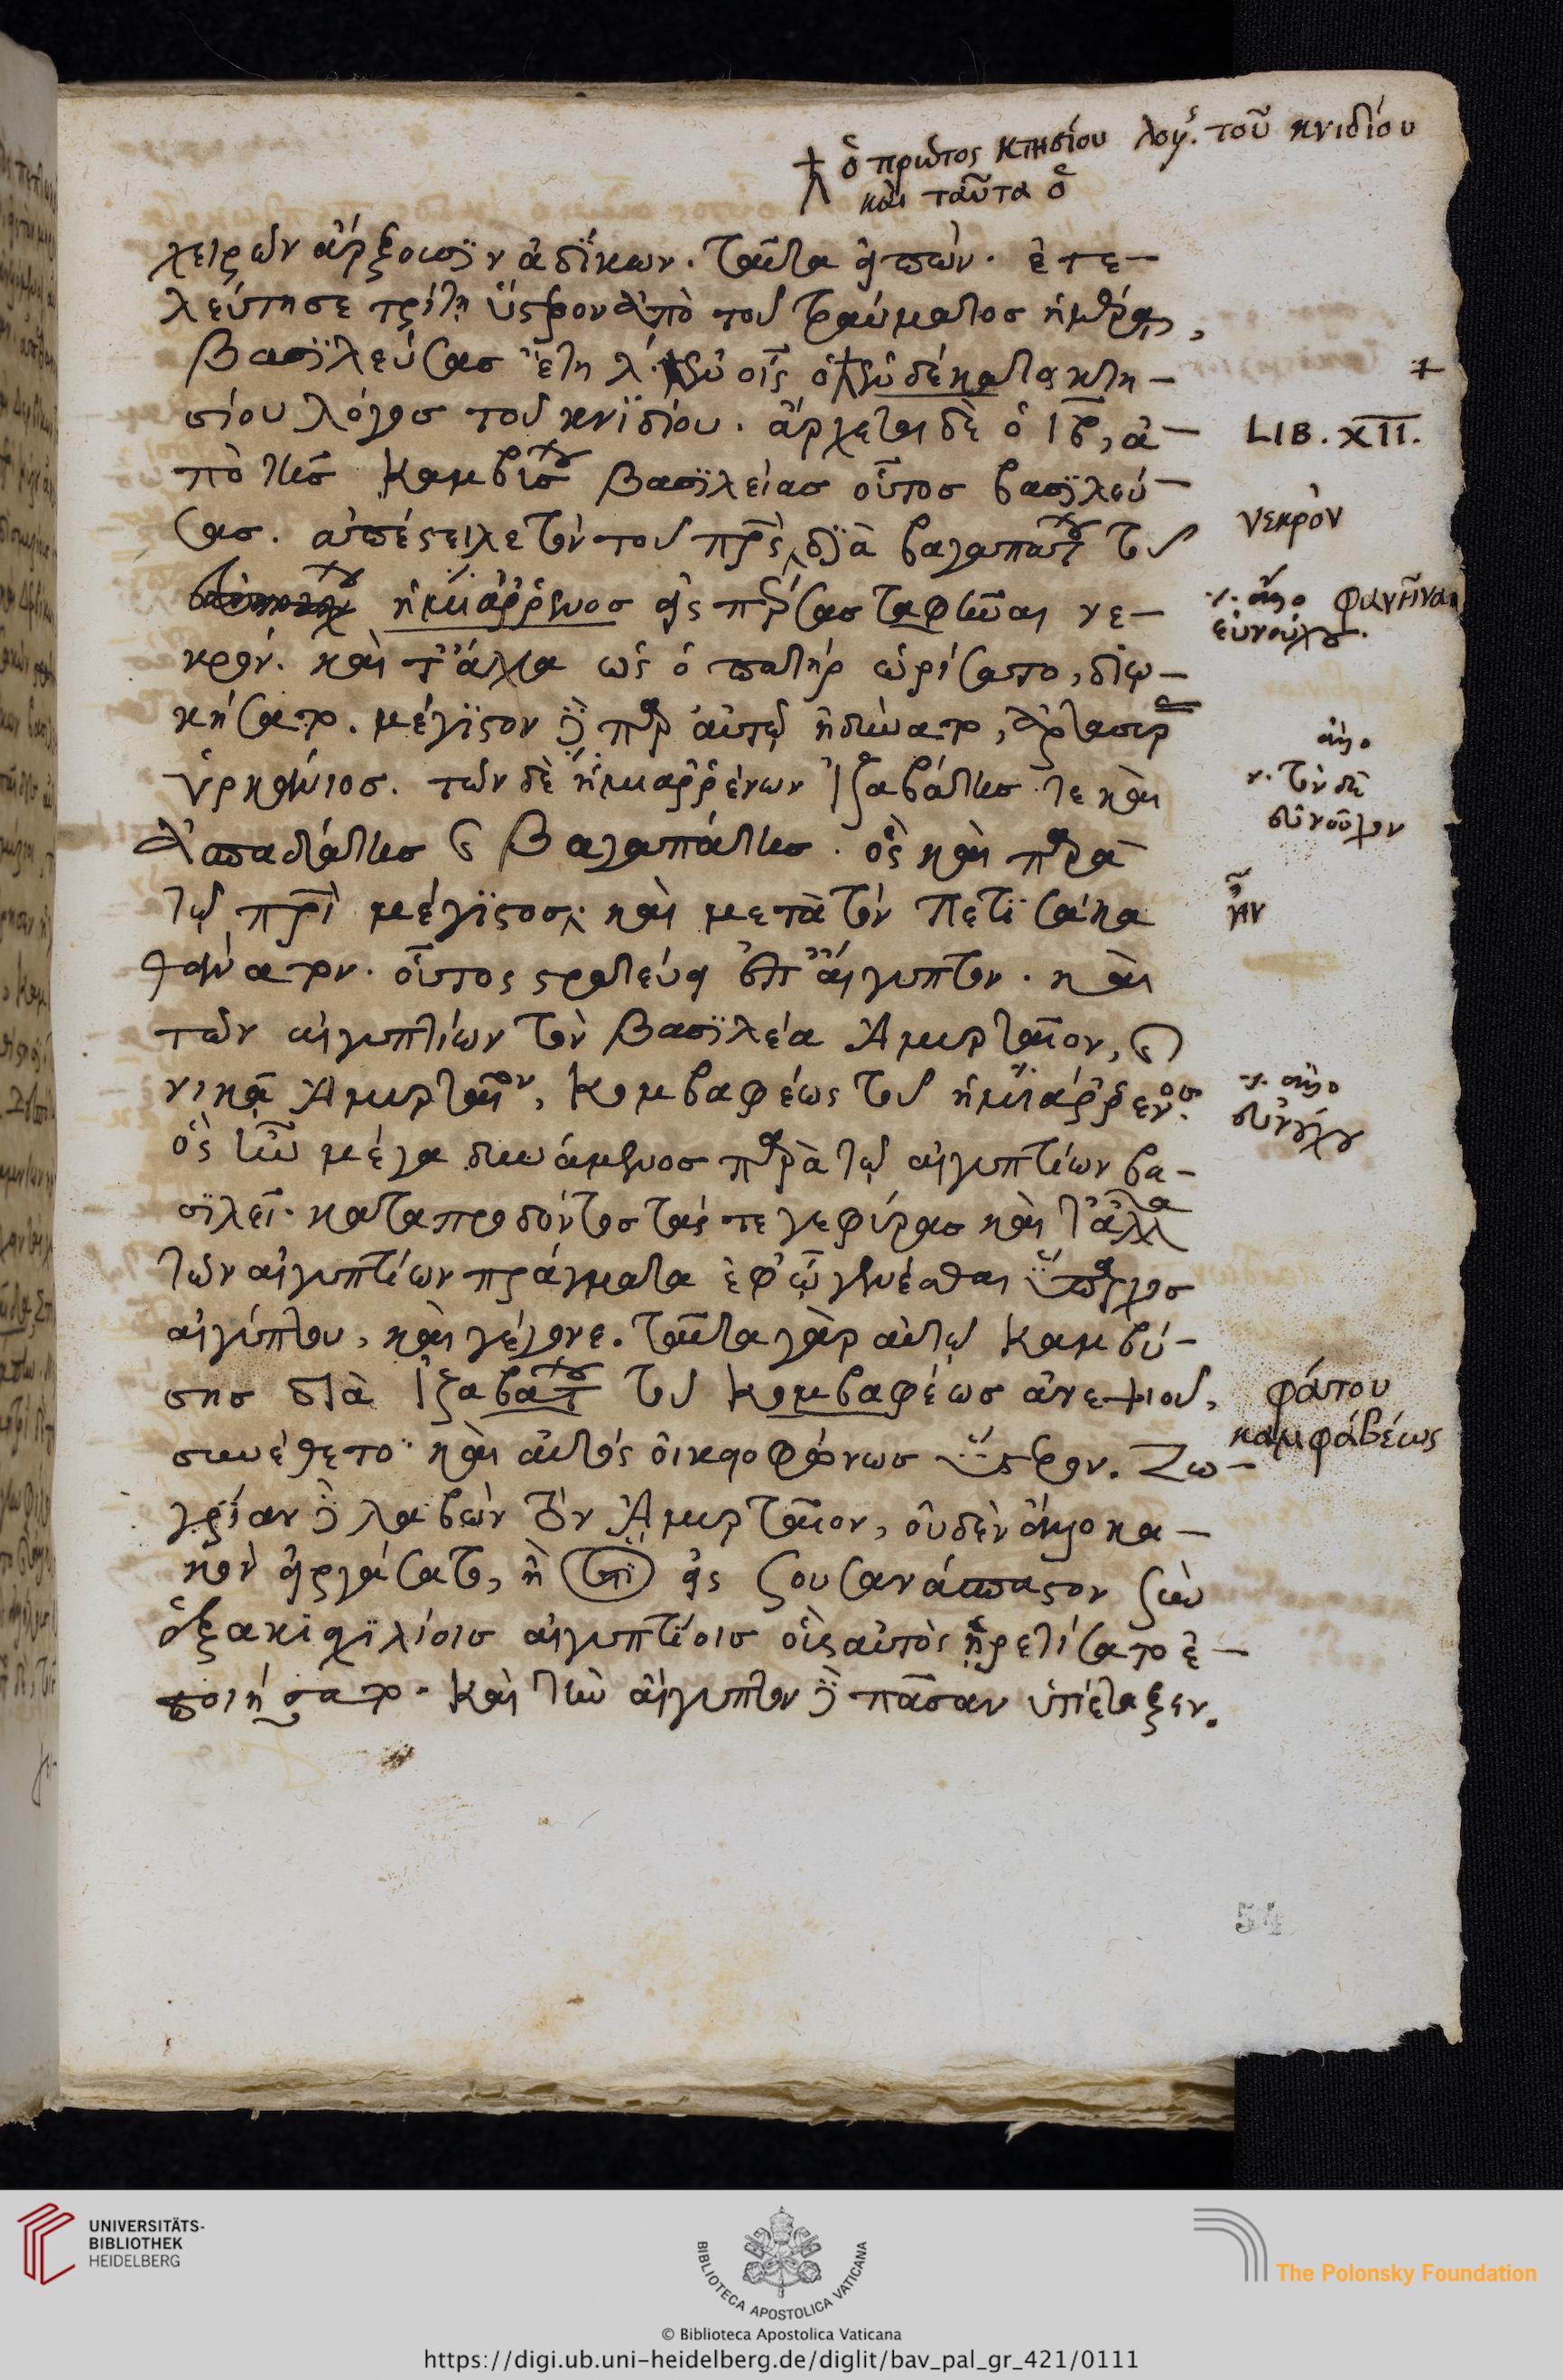 ὁ πρῶτος κτησίου λόγ. τοῦ κνιδίου
καὶ ταῦτα ὁ
χειρῶν ἄρξουσϊν ἀδίκων. ταῦτα εἰπὼν. ἐτε-
λεύτησε τρίτῃ ὕστερον ἀπὸ τοῦ τραύματος ἡμέρᾳ,
βασϊλεύσας ἔτη λ. ἐν οἷς ὁ ἑνδέκατος κτη-
σίου λόγος τοῦ κνϊδίου. ἄρχεται δὲ ὁ ιβ, ἀ-
πὸ τῆς Καμβύσου βασϊλείας οὗτος βασϊλεύ-
σας. ἀπέστειλε τὸν τοῦ πρς δϊὰ βαγαπάτου τοῦ
ἡμιάρρενος εἰς πέρσας ταφῆναι νε-
κρόν. καὶ τἄλλα ὡς ὁ πατὴρ ὡρίσατο, διῳ-
κήσατο. μέγϊστον δὲ παρ' αὐτῷ ἠδύνατο, ἀρτασύρας
ὑρκάνιος. τῶν δὲ ἡμιαρρένων Ἰζαβάτης τε καὶ
Ἀσπαδάτης καὶ Βαγαπάτης. ὃς καὶ παρὰ
τῷ πρὶ μέγϊστος καὶ μετὰ τὸν Πετϊσάκα
θάνατον. οὗτος στρατεύει ἐπ' αἴγυπτον. καὶ
τῶν αἰγυπτίων τὸν βασϊλέα Ἀμυρταῖον, καὶ
νικᾷ Ἀμυρταῖον, Κομβαφέως τοῦ ἡμιάρρενος.
ὃς ἦν μέγα δυνάμενος παρὰ τῷ αἰγυπτίων βα-
σϊλεῖ. καταπροδόντος τάς τε γεφύρας καὶ τἄλλα
τῶν αἰγυπτίων πράγματα ἐφ' ᾧ γενέσθαι ὕπαρχος
αἰγύπτου, καὶ γέγονε. ταῦτα γὰρ αὐτῷ Καμβύ-
σης διὰ Ἰζαβάτου τοῦ Κομβαφέως ἀνεψιοῦ,
συνέθετο καὶ αὐτὸς οἰκειοφώνως ὕστερον. Ζω-
γρίαν δὲ λαβὼν τὸν Ἀμυρταῖον, οὐδὲν ἄλλο κα-
κὸν εἰργάσατο, ἢ ὅτι εἰς Σουσανάσπαστον σὺν
ἑξακιχϊλίοις αἰγυπτίοις οἷς αὐτὸς ᾑρετίσατο ἐ-
ποιήσατο. καὶ τὴν αἴγυπτον δὲ πᾶσαν ὑπέταξεν.
LIB. XII.
νεκρὸν
γ. ἄλλο φανῆναι
εὐνούχου.
ἄλλο
τῶν δὲ
εὐνούχων
ἦν
γ. ἄλλο
εὐνούχου
φάτου
καμφάβέως
54
UNIVERSITÄTS-
BIBLIOTHEK
HEIDELBERG
BIBLIOTECA APOSTOLICA VATICANA
The Polonsky Foundation
© Biblioteca Apostolica Vaticana
https://digi.ub.uni-heidelberg.de/diglit/bav_pal_gr_421/0111